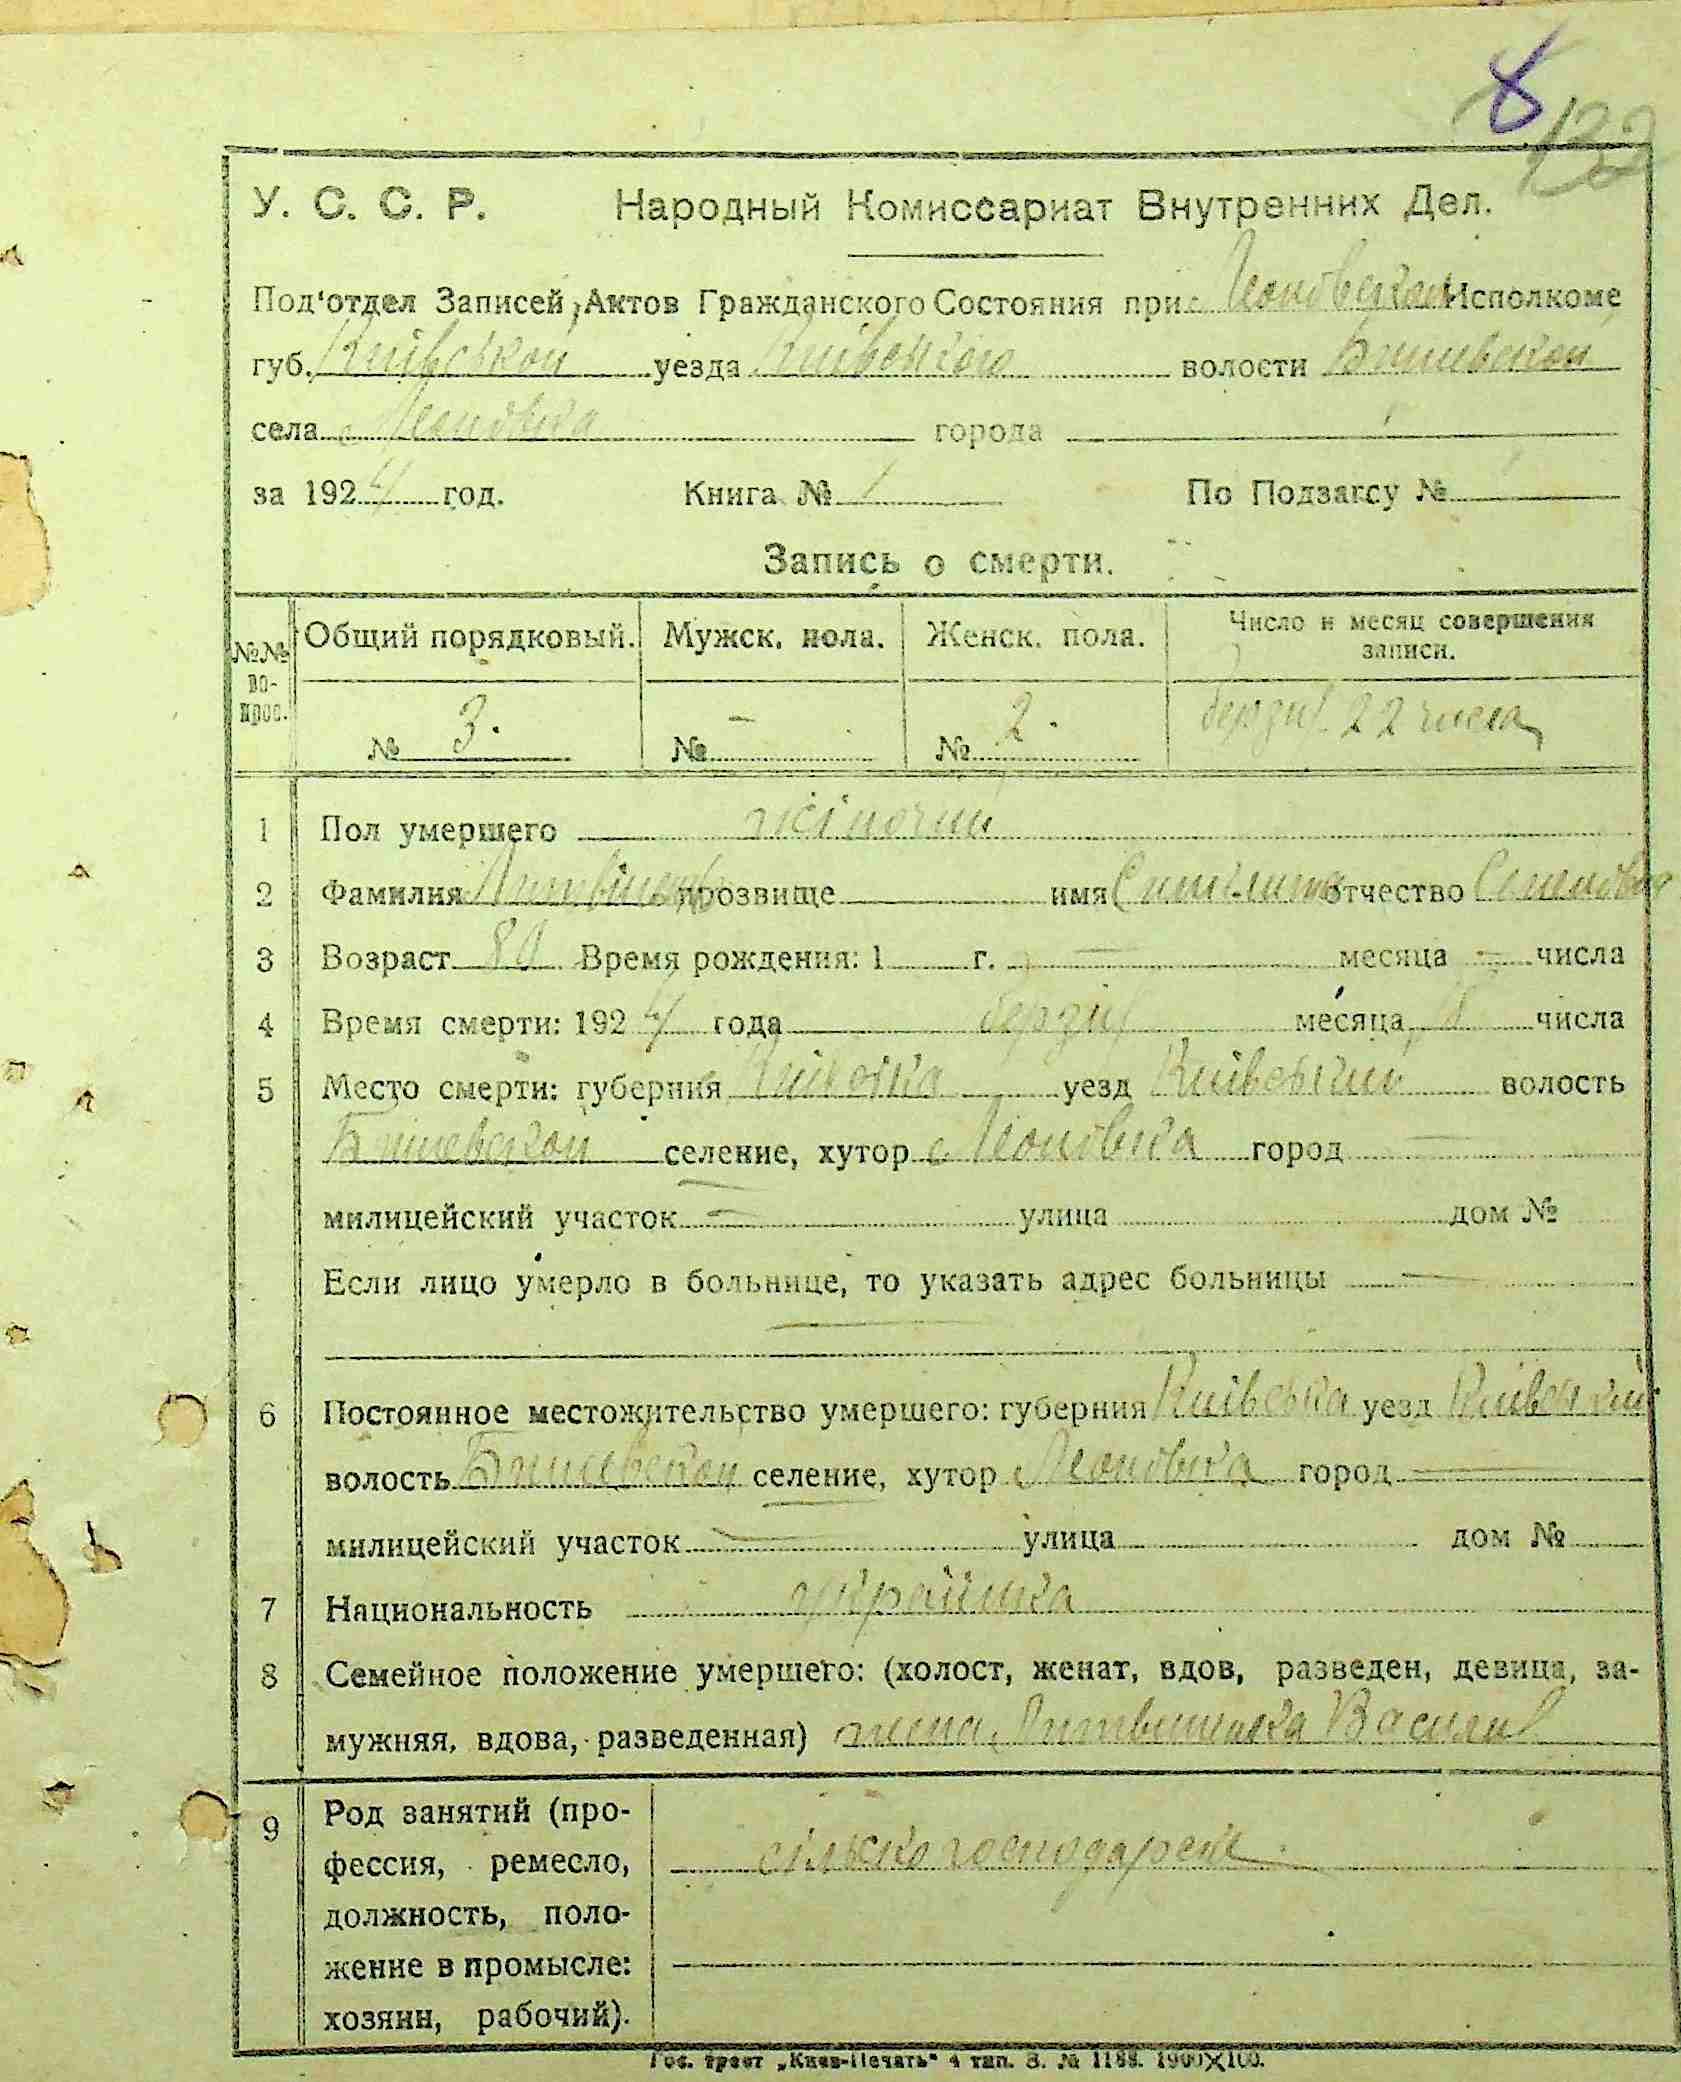 8
132
У. С. С. Р. Народный Комиссариат Внутренних Дел.
Под'отдел Записей Актов Гражданского Состояния при Леоновском Исполкоме
губ. Київської уезда Київського волости Бишевской
села Леоновка города
за 1924 год. Книга № 1 По Подзагсу №
Запись о смерти.
№№ вопрос. Общий порядковый. Мужск. пола. Женск. пола. Число и месяц совершения записи.
№ 3. № - № 2. 22 числа
1 Пол умершего жіночий
2 Фамилия прозвище имя отчество Семеновна
3 Возраст 80 Время рождения: 1 г. — месяца - числа
4 Время смерти: 1924 года месяца числа
5 Место смерти: губерния Київська уезд Київський волость
Бишевской селение, хутор с Леоновка город —
милицейский участок — улица дом №
Если лицо умерло в больнице, то указать адрес больницы —
6 Постоянное местожительство умершего: губерния Київська уезд Київський
волость Бишевской селение, хутор с Леоновка город —
милицейский участок — улица дом №
7 Национальность українка
8 Семейное положение умершего: (холост, женат, вдов, разведен, девица, за-
мужняя, вдова, разведенная) жена Литвиненка
9 Род занятий (про-
фессия, ремесло, сільско господарство
должность, поло-
жение в промысле:
хозяин, рабочий).
Гос. трест „Киев-Печать" 4 тип. З. № 1188. 1900×100.